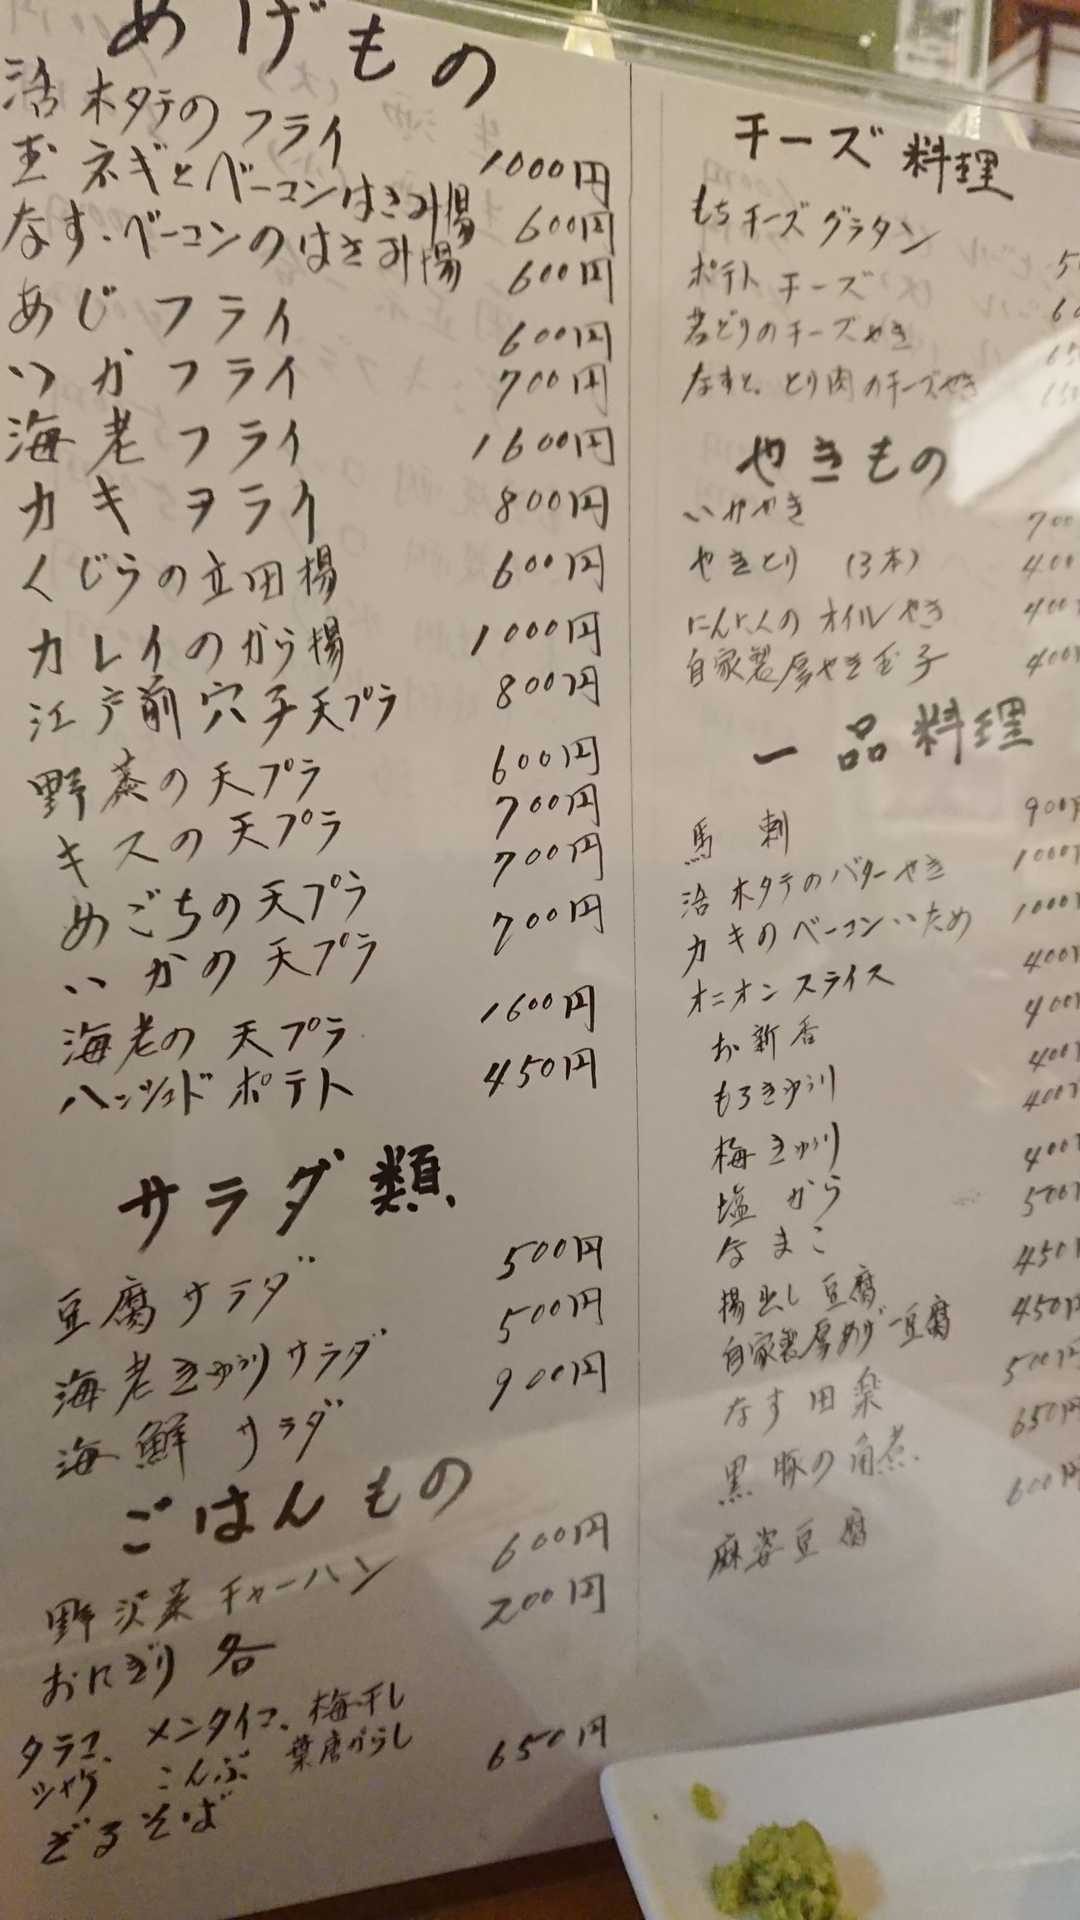 あげもの
活ホタテのフライ 1000円
玉ネギとベーコンはさみ揚 600円
なす・ベーコンのはさみ揚 600円
あじフライ 600円
いかフライ 700円
海老フライ 1600円
カキフライ 800円
くじらの立田揚 600円
カレイのから揚 1000円
江戸前穴子天プラ 800円
野菜の天プラ 600円
キスの天プラ 700円
めごちの天プラ 700円
いかの天プラ 700円
海老の天プラ 1600円
ハッシュドポテト 450円
サラダ類
豆腐サラダ 500円
海老きゅうりサラダ 500円
海鮮サラダ 900円
ごはんもの
野沢菜チャーハン 600円
おにぎり各 200円
タラコ、メンタイコ、梅干し
シャケ こんぶ 葉唐がらし
ざるそば 650円
チーズ料理
もちチーズグラタン
ポテトチーズ
若どりのチーズやき
なすと、とり肉のチーズやき
やきもの
いかやき 700
やきとり (3本) 400
にんにくのオイルやき 400円
自家製厚やき玉子 400円
一品料理
馬刺 900円
活ホタテのバターやき 1000円
カキのベーコンいため 1000円
オニオンスライス 400円
お新香 400円
もろきゅうり 400円
梅きゅうり 400円
塩から 400円
なまこ 500円
揚出し豆腐 450円
自家製厚あげ豆腐 450円
なす田楽 500円
黒豚の角煮 650円
麻婆豆腐 600円